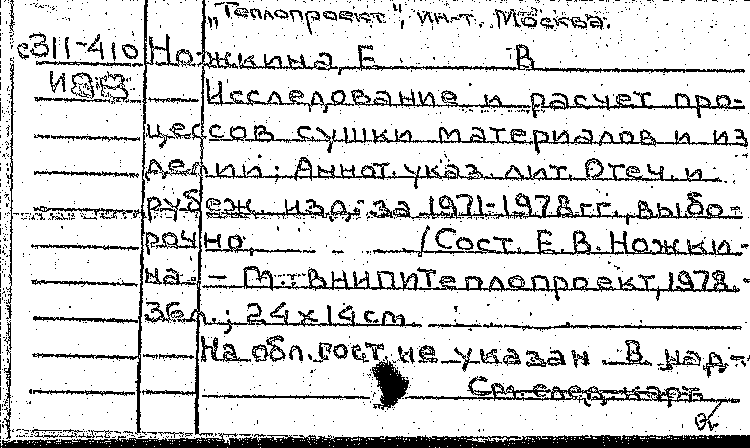 „Теплопроект", ин-т. Москва.
с311-410 Ножкина, Е В
И883
Исследование и расчет про-
цессов сушки материалов и из
делий: Аннот. указ. лит. Отеч. и
рубеж. изд. за 1971-1978 гг., выбо-
рочно. /Сост. Е. В. Ножки-
на. - М.: ВНИПИТеплопроект, 1978. -
36 л.; 24х14 см
На обл. сост. не указан. В над-
См. след. карт